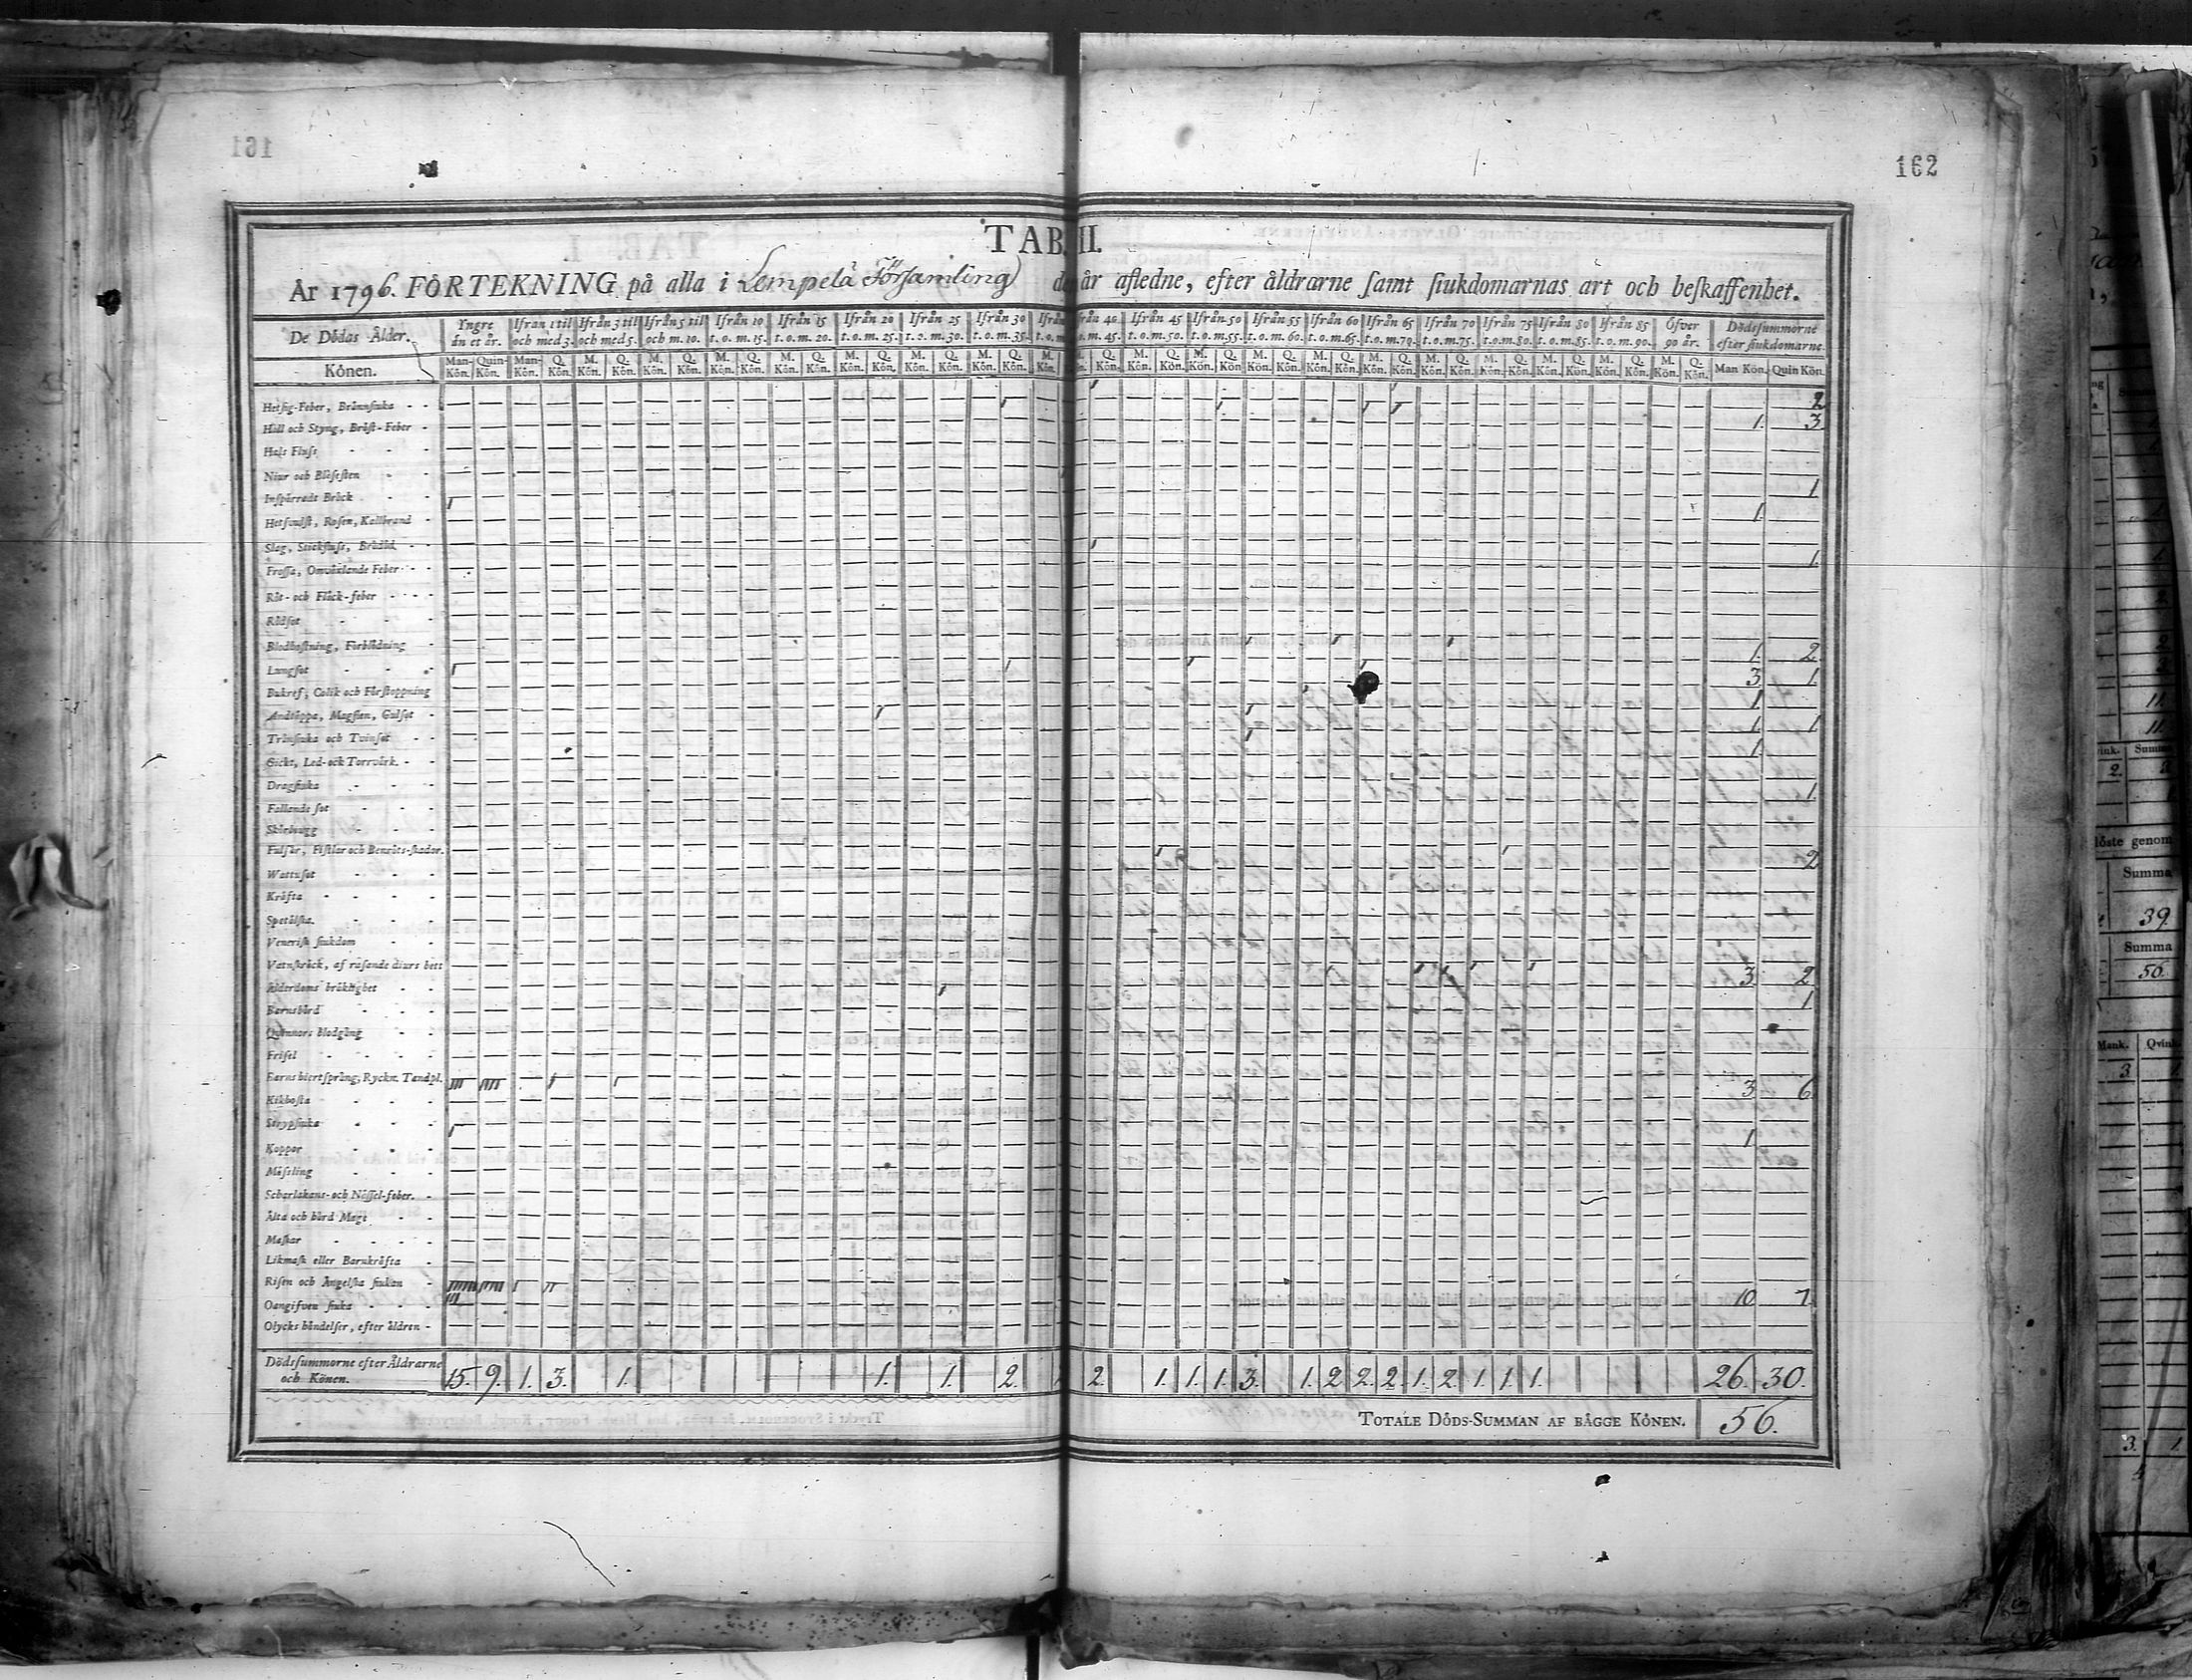 161
162
TAB. II.
År 1796. FÖRTEKNING på alla i Lempelä Församling det år afledne, efter åldrarne samt siukdomarnas art och beskaffenhet.
De Dödas Ålder. Yngre än et år. Ifrån 1 til och med 3. Ifrån 3 til och med 5. Ifrån 5 til och m. 10. Ifrån 10 t. o. m. 15. Ifrån 15 t. o. m. 20. Ifrån 20 t. o. m. 25. Ifrån 25 t. o. m. 30. Ifrån 30 t. o. m. 35. Ifrån 40. t. o. m. 45. Ifrån 45 t. o. m. 50. Ifrån 50 t. o. m. 55. Ifrån 55 t. o. m. 60. Ifrån 60 t. o. m. 65. Ifrån 65 t. o. m. 70. Ifrån 70 t. o. m. 75. Ifrån 75 t. o. m. 80. Ifrån 80 t. o. m. 85. Ifrån 85 t. o. m. 90. Öfver 90 år. Dödssummorne efter siukdomarne.
Könen. Man-Kön. Quin-Kön. Man-Kön. Q. Kön. M. Kön. Q. Kön. Man Kön. Quin Kön.
Hetsig-Feber, Brännsiuka 2
Håll och Styng, Bröst-Feber 1. 3
Hals Fluss
Niur och Blåsesten
Inspärradt Bräck 1
Hetsvulst, Rosen, Kallbrand 1
Slag, Stickfluss, Brådöd
Frossa, Omväxlande Feber 1.
Röt- och Fläck-feber
Rödsot
Blodhostning, Förblödning 1. 2.
Langsot 3 1.
Bukref, Colik och Förstoppning 1
Andtäppa, Magsien, Gulsot 1. 1
Tränsiuka och Tvinsot 1
Gickt, Led- och Torrvärk.
Dragsiuka 1.
Fallande sot
Skörbugg
Fulsår, Fistlar och Benröts-skador. 2
Wattusot
Kräfta
Spetälska.
Venerisk siukdom
Vatnskräck, af rasande diurs bett 3 2.
Ålderdoms bräklighet 1
Barnsbörd
Quinnors blodgång
Frisel
Barns hiertsprång, Ryckn. Tandpl. 3 6
Kikhosta
Strypsiuka 1
Koppor
Mässling
Scharlakans- och Nässel-feber.
Älta och hård Mage
Maskar
Likmask eller Barnkräfta
Risen och Ängelska siukan
Oangifven siuka 10 7.
Olycks händelser, efter åldren
Dödssummorne efter Åldrarne och Könen. 15. 9. 1. 3. 1. 1. 1. 2. 2. 1. 1. 1. 3. 1. 2 2. 2. 1. 2. 1. 1. 1. 26. 30.
TOTALE DÖDS-SUMMAN AF BÄGGE KÖNEN. 56.
löste genom
Summa
39.
Summa
56.
Mank. Qvink.
3
3. 1.